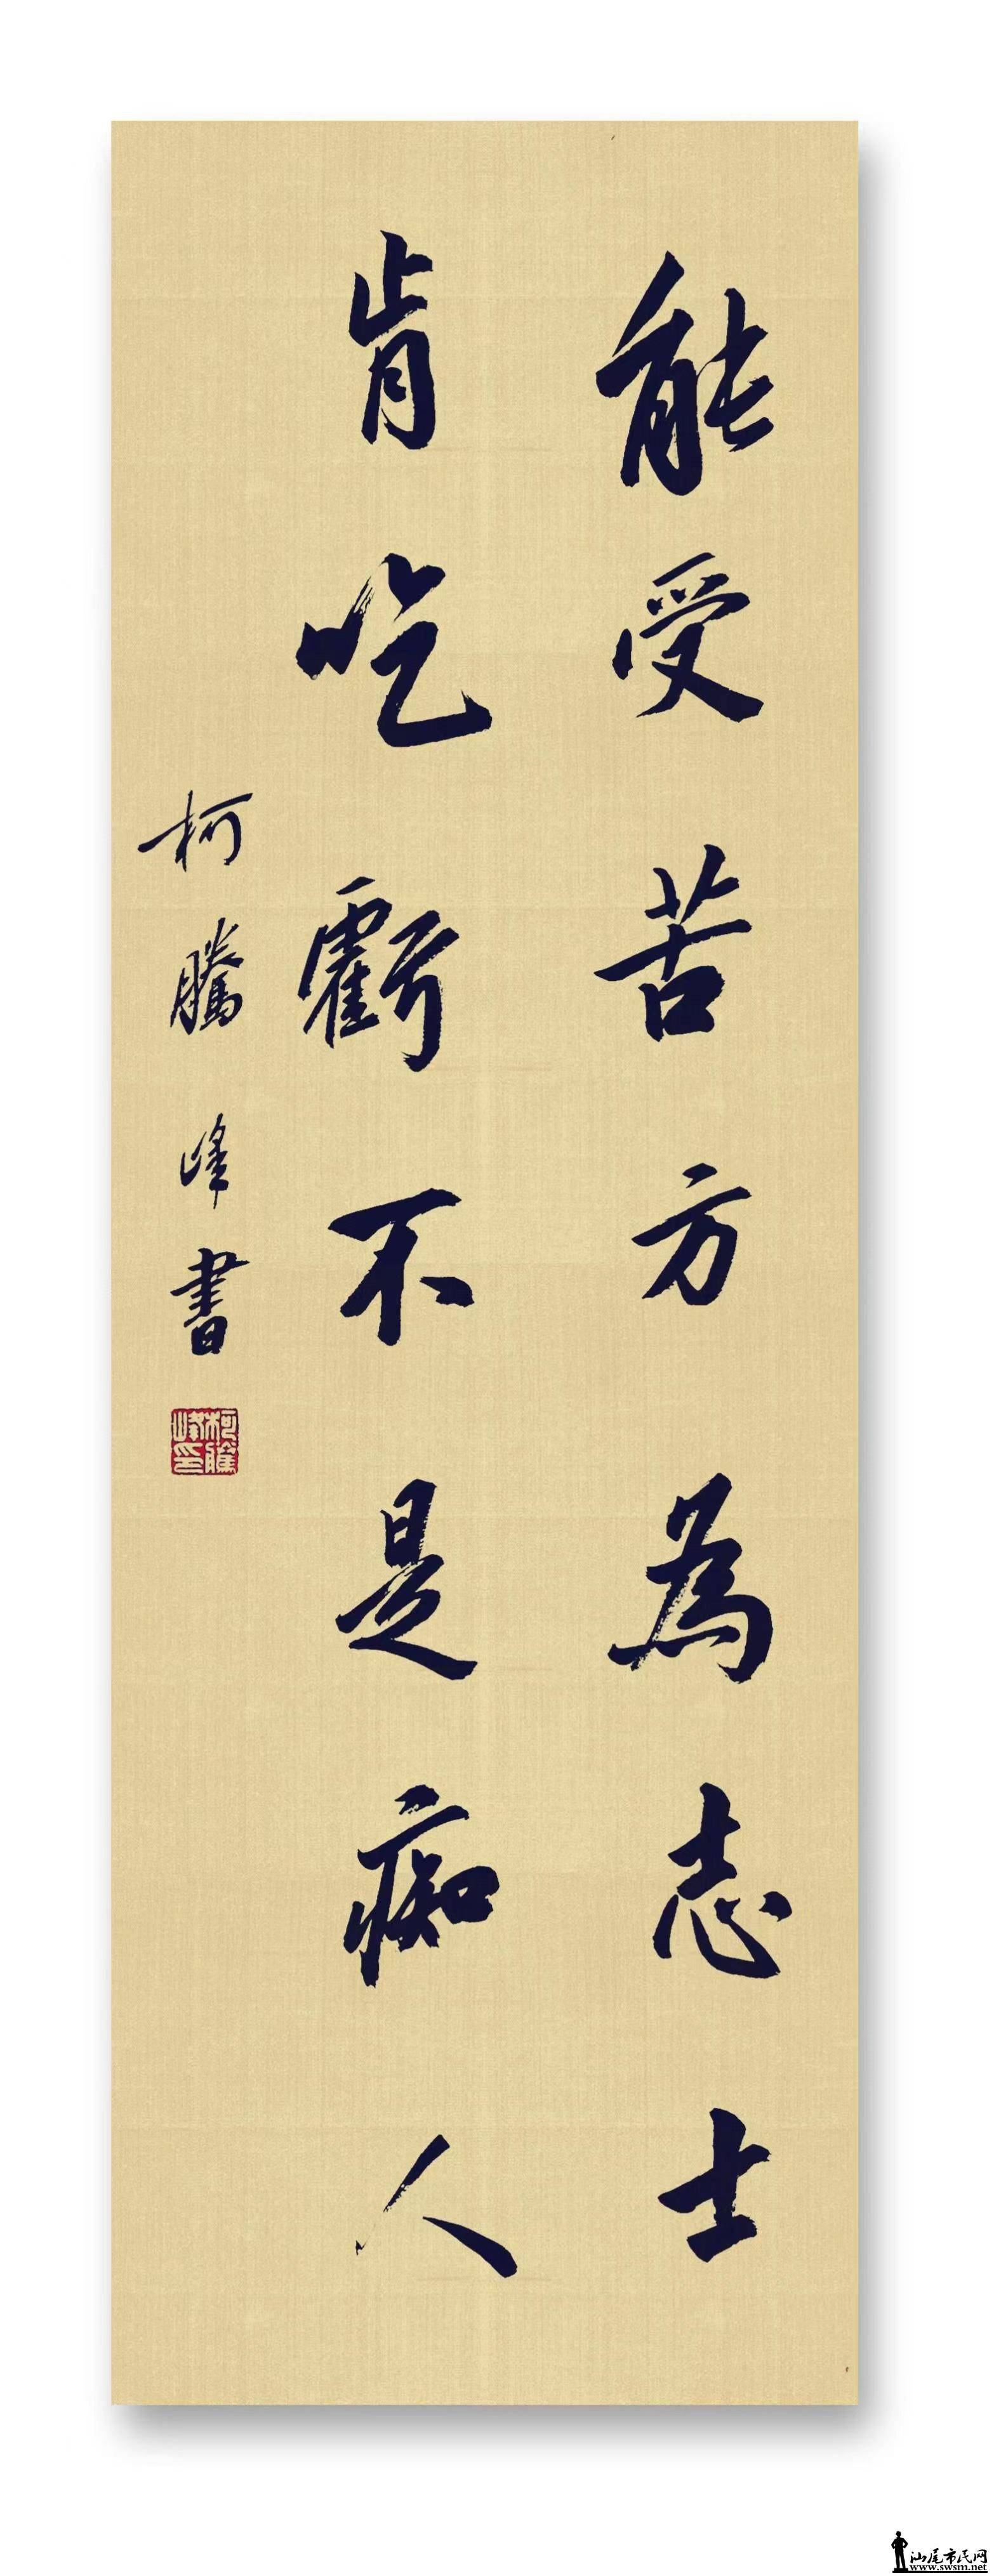 能受苦方為志士
肯吃虧不是痴人
柯騰峰書
柯騰峰印
汕尾市民网
www.swsm.net